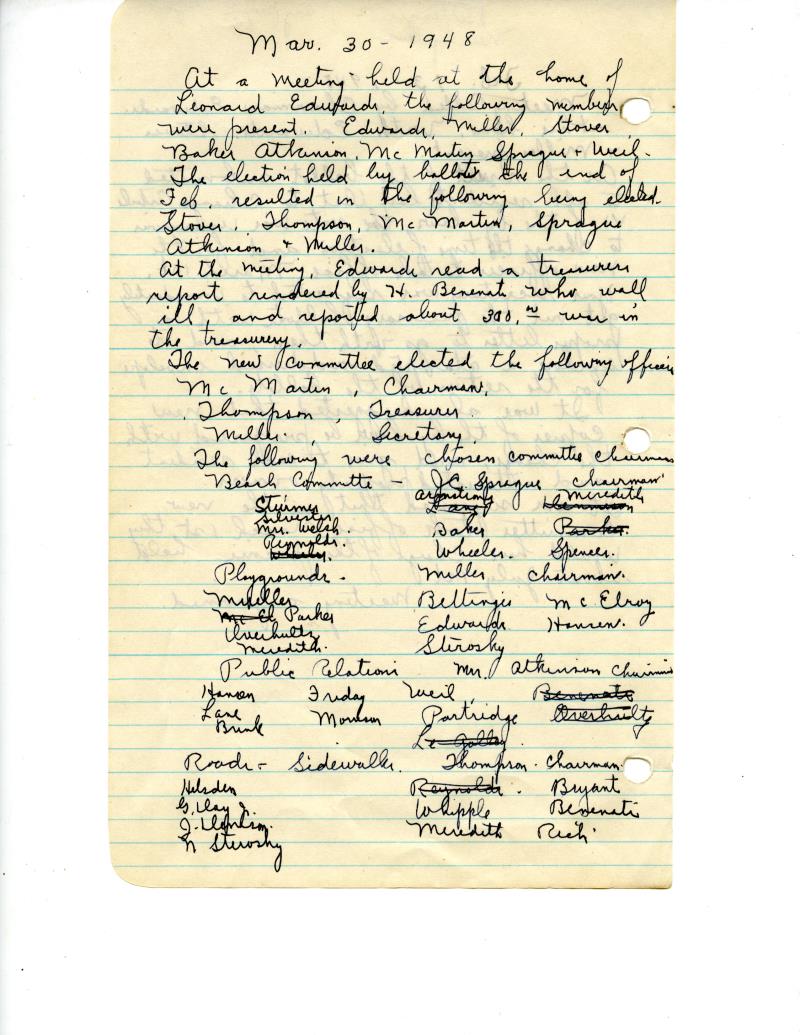 Mar. 30 - 1948
At a meeting held at the home of
Leonard Edwards, the following members
were present. Edwards, Miller, Stover
Baker Atkinson, Mc Martin Sprague + Weil.
The election held by ballots the end of
Feb. resulted in the following being elected.
Stover, Thompson, Mc Martin, Sprague
Atkinson + Miller.
At the meeting, Edwards read a treasurers
report rendered by H. Benenati who wall
ill, and reported about 300.00 was in
the treasury.
The new committee elected the following officers
Mc Martin, Chairman,
Thompson, Treasurer
Miller, Secretary,
The following were chosen committee chairmans
Beach Committe - J.C. Sprague Chairman
Sturmer Armstrong Lane Meredith Denmison
Silvester
Mrs. Welsh. Baker Parker
Reynolds.
Wheeler. Spencer.
Playgrounds - Miller chairman.
Mueller Bettinger Mc Elroy
Mc El Parker Edwards Hansen.
Overhultz
Meredith. Sterosky
Public Relations Mr. Atkinson chairman
Hansen Friday Weil, Benenati
Lane Morrison Partridge Overhultz
Brink
Roads - Sidewalks. Thompson - Chairman.
Hilsden Reynolds. Bryant
G. Day Jr. Whipple Benenati
J. Meredith Rich
N Sterosky